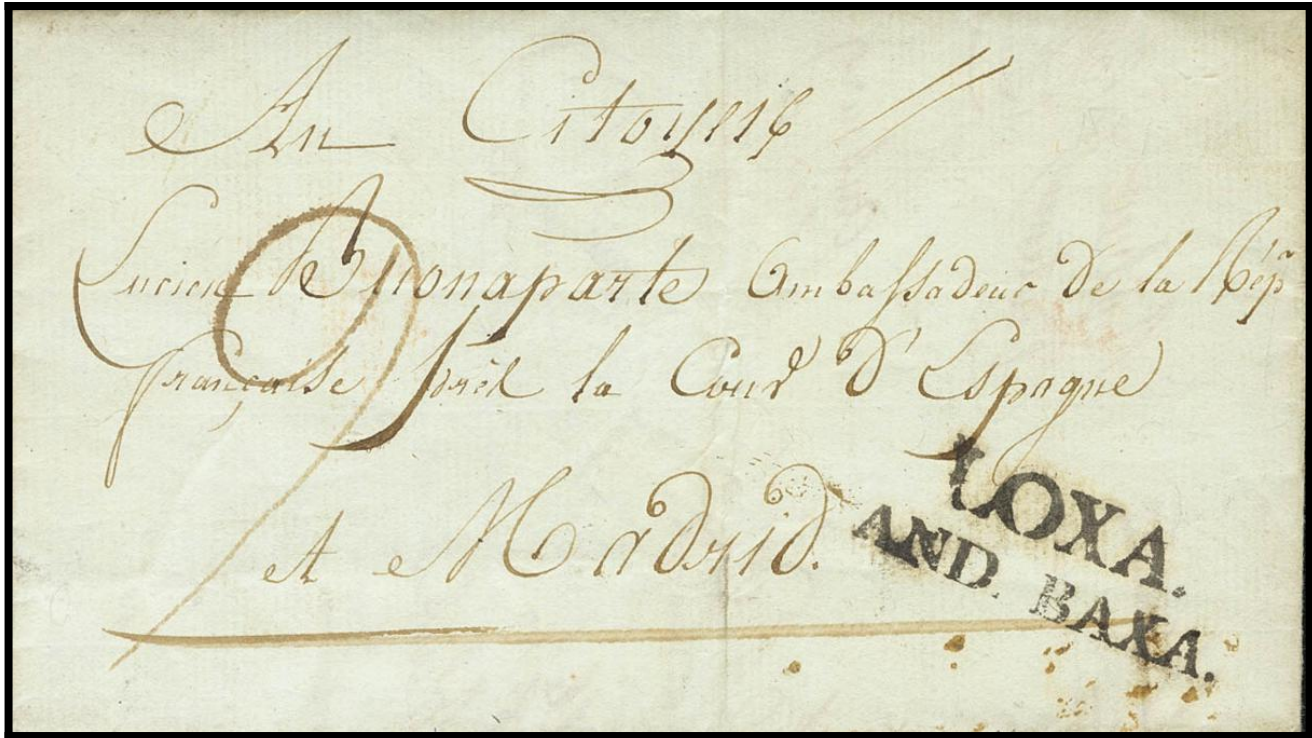 Au Citoyen
Lucien Buonaparte Ambassadeur De la Rép.
française près la Cour d'Espagne
et Madrid.
LOXA.
AND. BAXA.